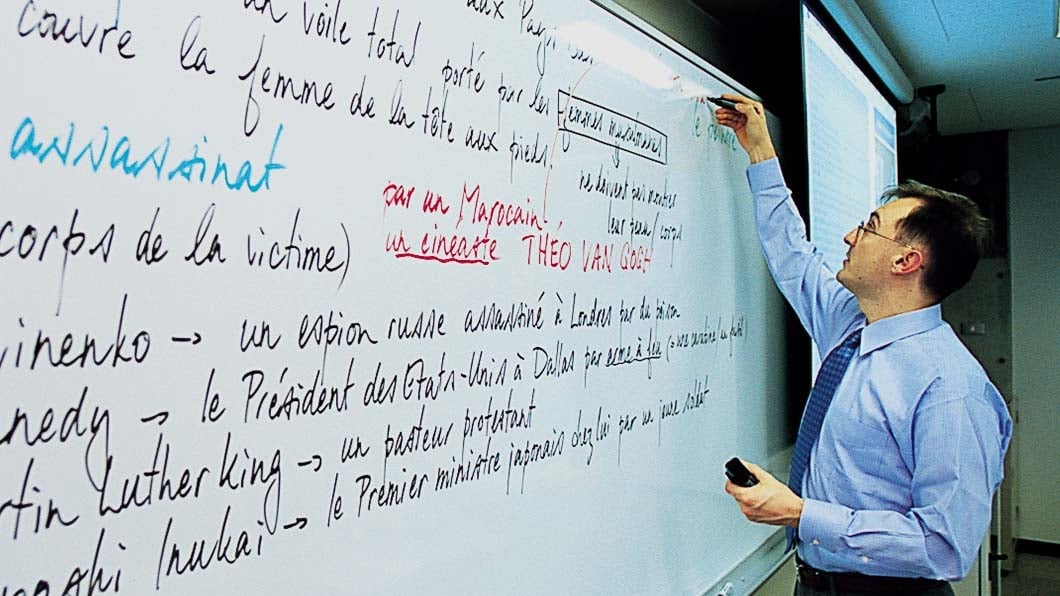 un voile total
aux Pays
couvre la femme de la tête aux pieds,
porté par les femmes musulmanes
ne doivent pas montrer
leur peau/corps
assassinat
par un Marocain
un cinéaste THÉO VAN GOGH
corps de la victime)
vinenko → un espion russe assassiné à Londres par du poison
nedy → le Président des Etats-Unis à Dallas par arme à feu
rtin Luther King → un pasteur protestant
Inukai → le Premier ministre japonais chez lui par un jeune soldat